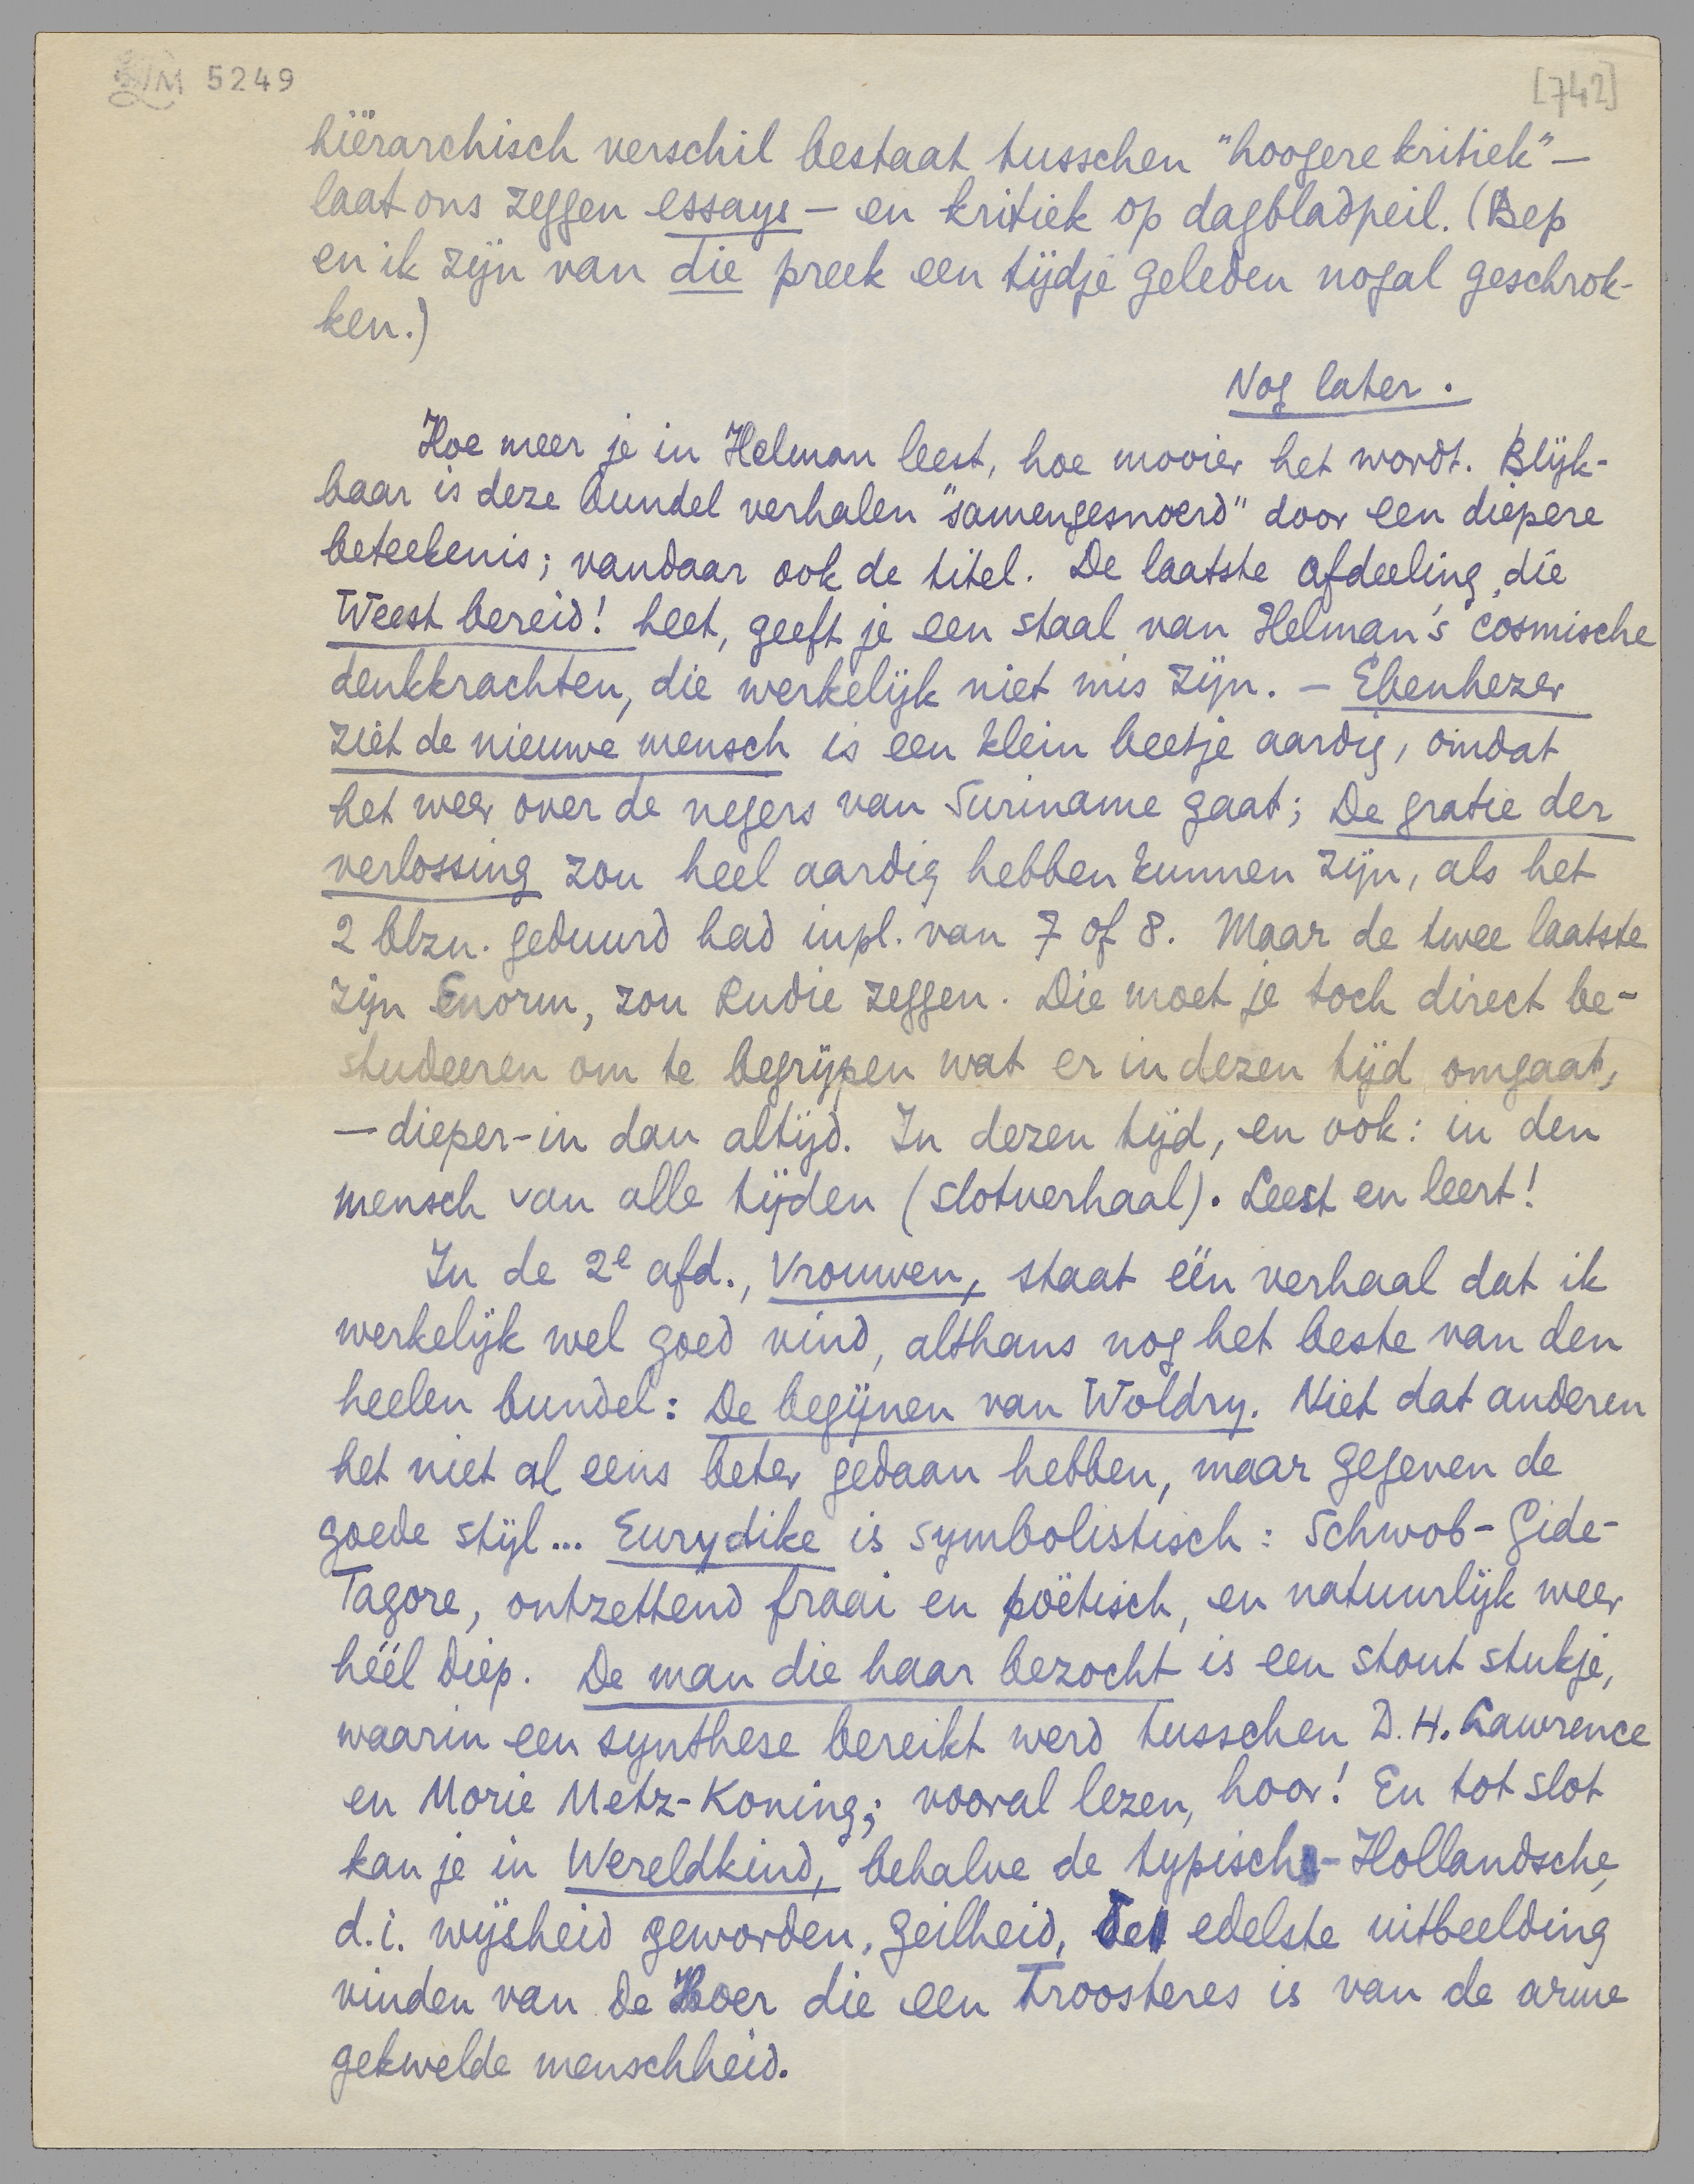 LM 5249
[742]
hiërarchisch verschil bestaat tusschen "hoogere kritiek" —
laat ons zeggen essays — en kritiek op dagbladpeil. (Bep
en ik zijn van die preek een tijdje geleden nogal geschrok-
ken.)
Nog later.
Hoe meer je in Helman leest, hoe mooier het wordt. Blijk-
baar is deze bundel verhalen "samengesnoerd" door een diepere
beteekenis; vandaar ook de titel. De laatste afdeeling, die
Weest bereid! heet, geeft je een staal van Helman's cosmische
denkkrachten, die werkelijk niet mis zijn. — Ebenhezer
ziet de nieuwe mensch is een klein beetje aardig, omdat
het weer over de negers van Suriname gaat; De gratie der
verlossing zou heel aardig hebben kunnen zijn, als het
2 blzn. geduurd had inpl. van 7 of 8. Maar de twee laatste
zijn Enorm, zou Rudie zeggen. Die moet je toch direct be-
studeeren om te begrijpen wat er in dezen tijd omgaat,
— dieper-in dan altijd. In dezen tijd, en ook: in den
mensch van alle tijden (slotverhaal). Leest en leert!
In de 2e afd., Vrouwen, staat één verhaal dat ik
werkelijk wel goed vind, althans nog het beste van den
heelen bundel: De begijnen van Woldry. Niet dat anderen
het niet al eens beter gedaan hebben, maar gegeven de
goede stijl... Eurydike is symbolistisch: Schwob-Gide-
Tagore, ontzettend fraai en poëtisch, en natuurlijk weer
héél diep. De man die haar bezocht is een stout stukje,
waarin een synthese bereikt werd tusschen D.H. Lawrence
en Marie Metz-Koning; vooral lezen, hoor! En tot slot
kan je in Wereldkind, behalve de typisch-Hollandsche,
d.i. wijsheid geworden, geilheid, de edelste uitbeelding
vinden van de Hoer die een Troosteres is van de arme
gekwelde menschheid.